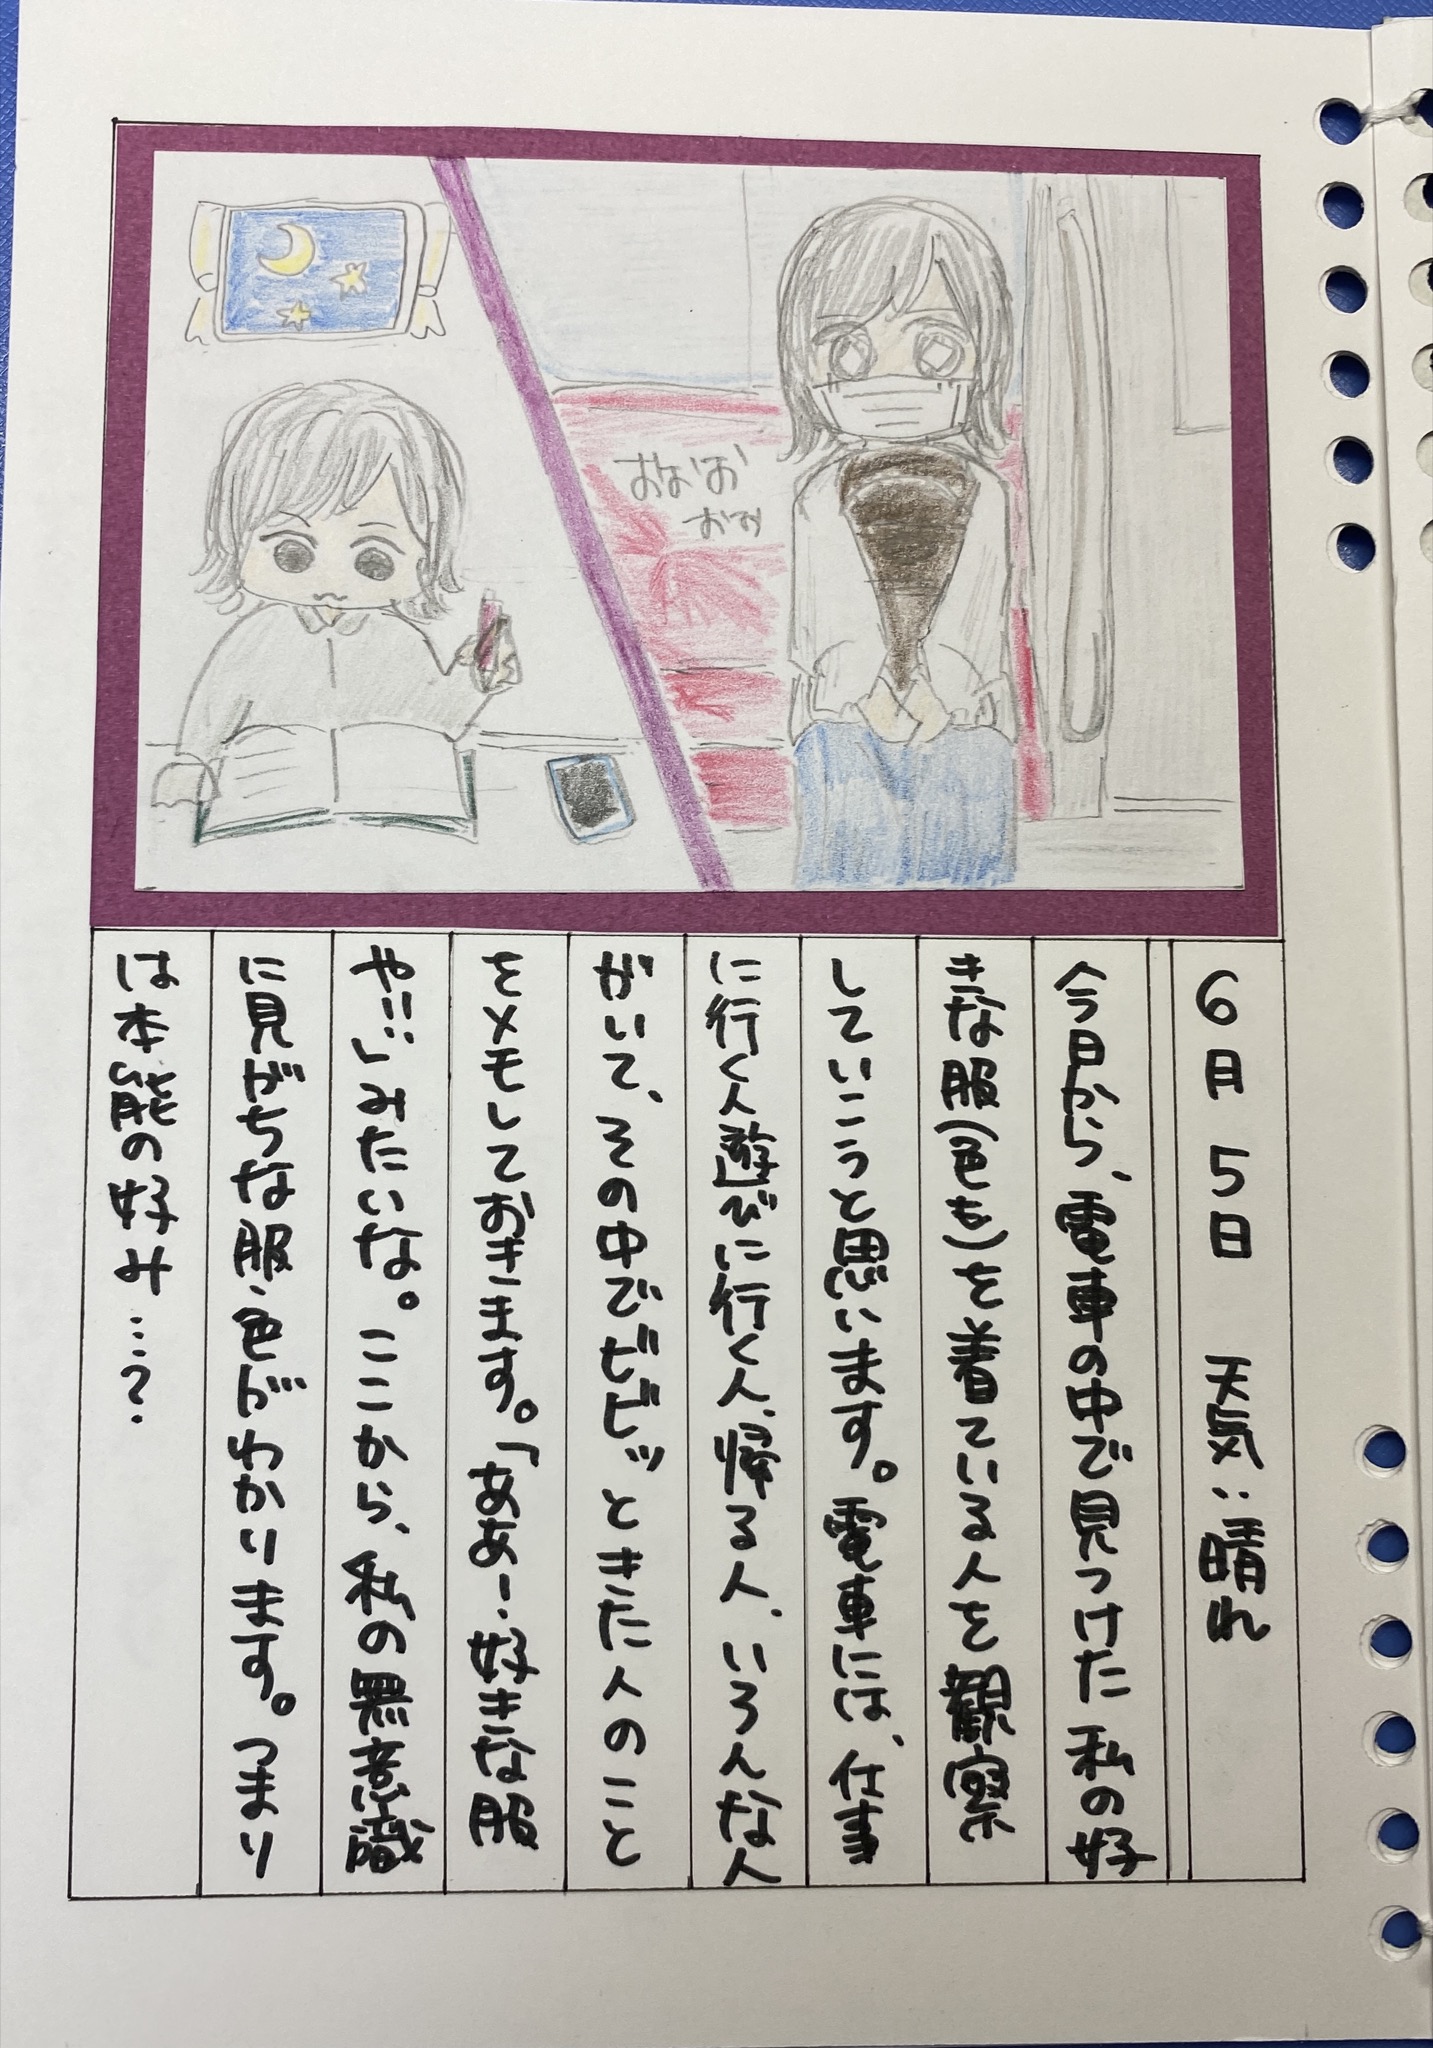 おおお
おお
6月5日 天気:晴れ
今日から、電車の中で見つけた私の好
きな服(色も)を着ている人を観察
していこうと思います。電車には、仕事
に行く人遊びに行く人、帰る人、いろんな人
がいて、その中でビビッときた人のこと
をメモしておきます。「ああー、好きな服
や!!」みたいな。ここから、私の無意識
に見がちな服、色がわかります。つまり
は本能の好み…?